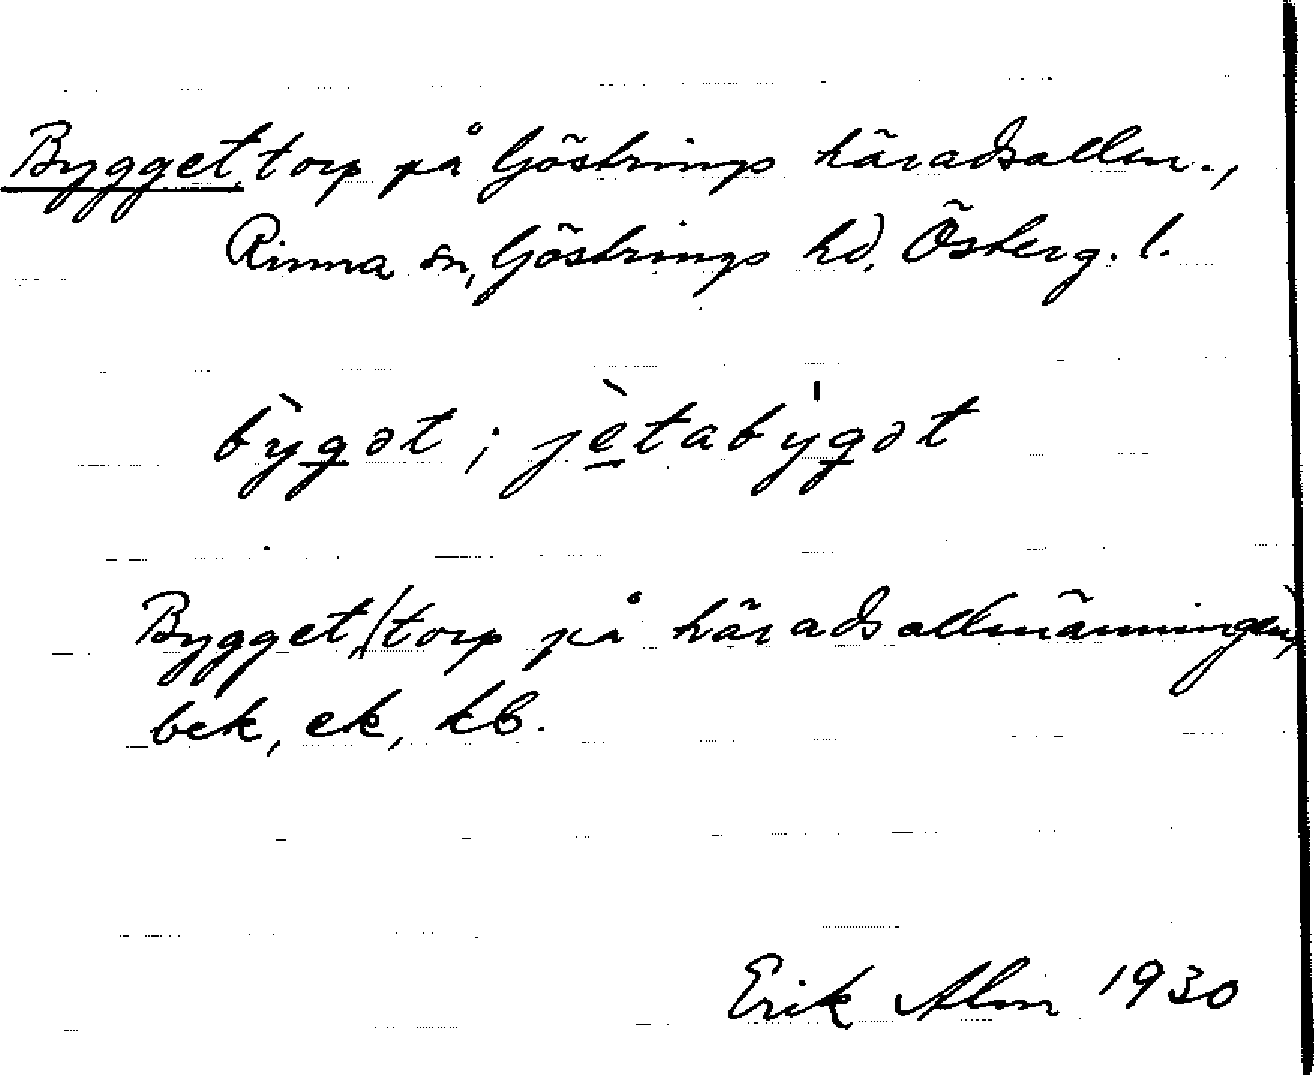 Bygget, torp på Göstrings häradsallm.,
Rinna sn, Göstrings hd, Österg. l.
bỳgət ; jètabýgət
Bygget, (torp på häradsallmänningen)
bek, ek, kb.
Erik Alm 1930